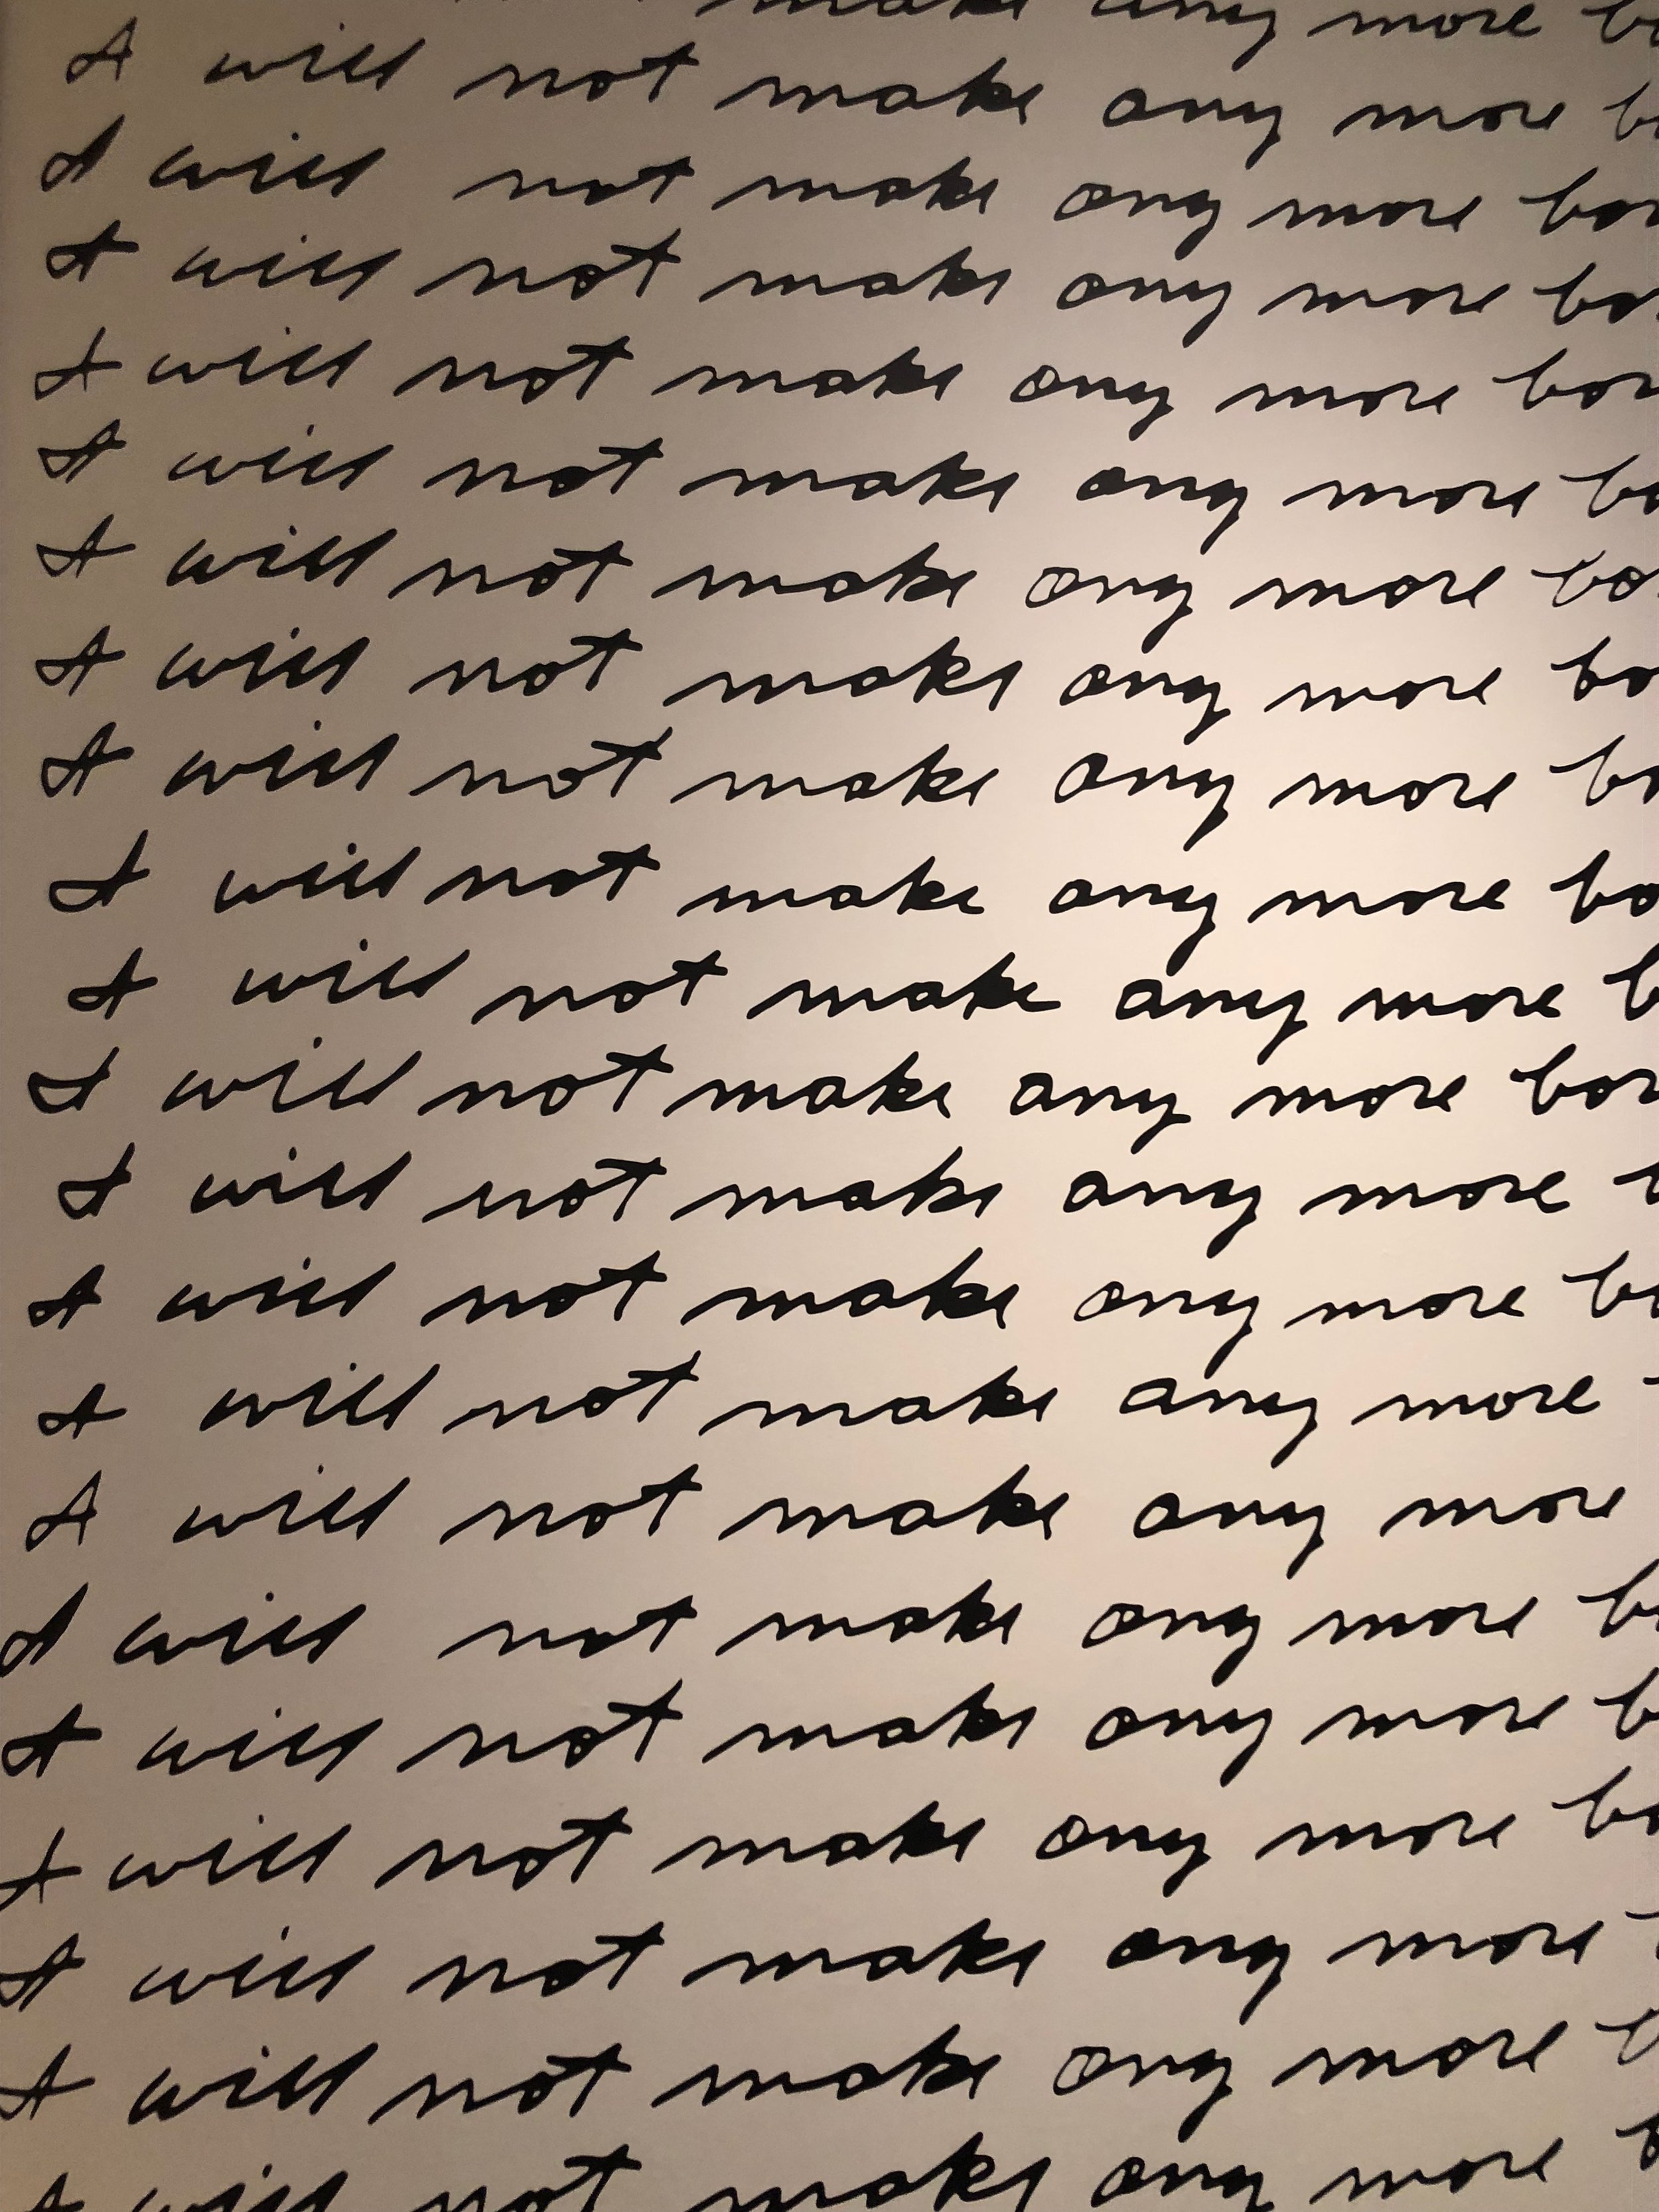 make any more bo
I will not make any more bo
I will not make any more bor
I will not make any more bor
I will not make any more bor
I will not make any more bo
I will not make any more bo
I will not make any more bo
I will not make any more bo
I will not make any more bo
I will not make any more b
I will not make any more bor
I will not make any more
I will not make any more bo
I will not make any more
I will not make any more
I will not make any more b
I will not make any more b
I will not make any more bo
I will not make any more
I will not make any more b
I will not make any more